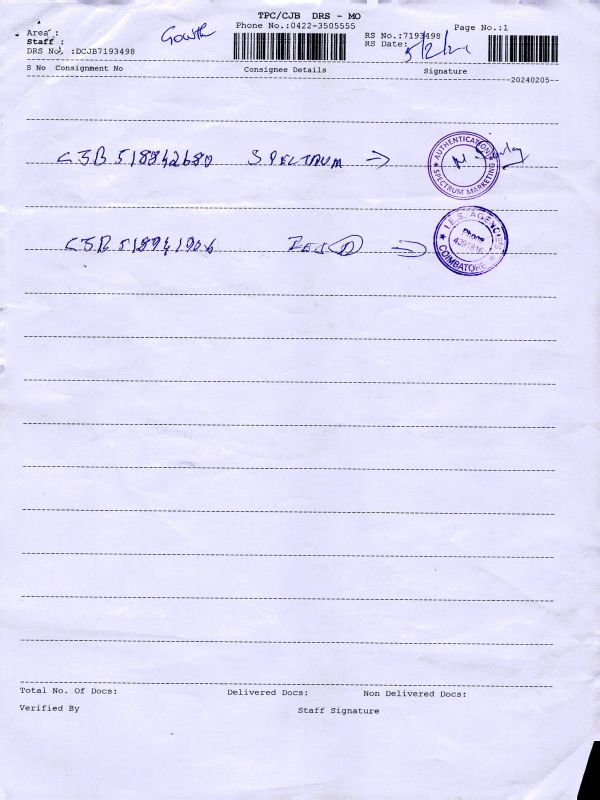 TPC/CJB DRS - MO
Phone No.:0422-3505555
Page No.:1
Area :
Gowth
RS No.:7193498
Staff :
RS Date:
5/2/24
DRS No. :DCJB7193498
S No Consignment No Consignee Details Signature
20240205
CJB 518942680 SPECTRUM →
AUTHENTICATION
SPECTRUM MARKETING
CJB 518941906 →
I.E.S. AGENCIES
Phone
COIMBATORE
Total No. Of Docs: Delivered Docs: Non Delivered Docs:
Verified By Staff Signature